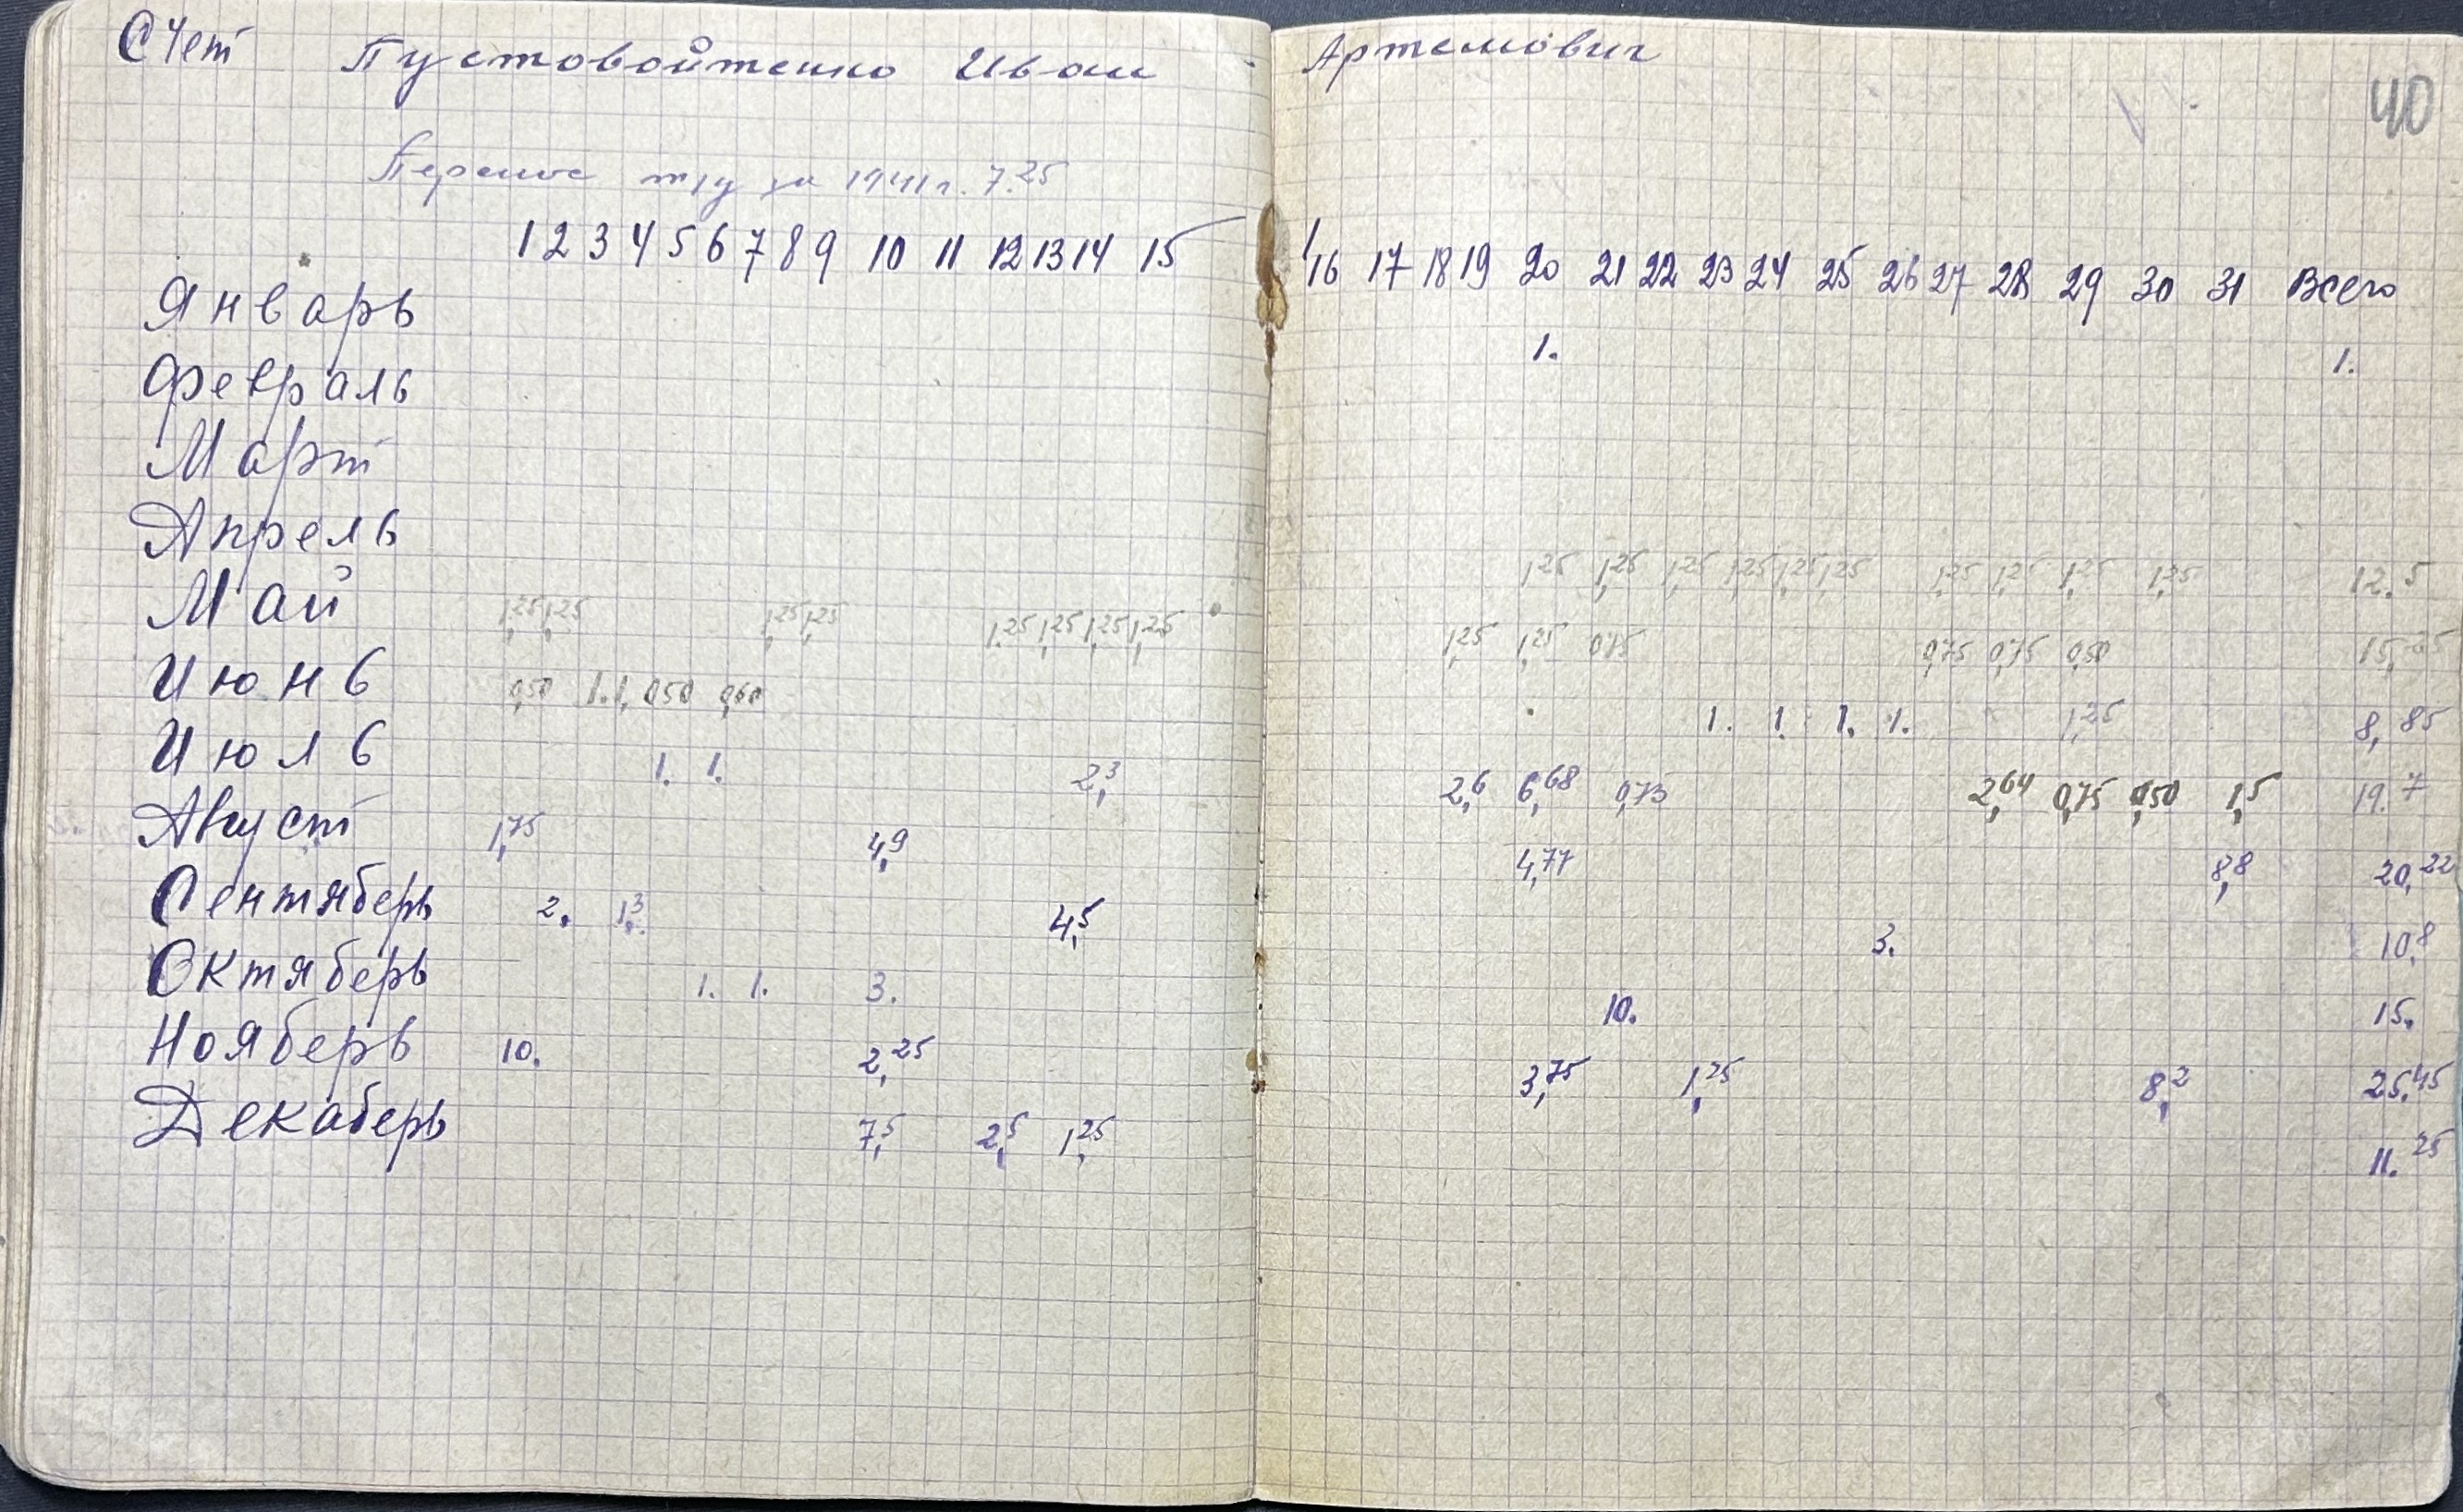 Счет Пустовойтенко Иван Артемович
40
Перенос тру за 1941г. 7.25
1 2 3 4 5 6 7 8 9 10 11 12 13 14 15 16 17 18 19 20 21 22 23 24 25 26 27 28 29 30 31 Всего
Январь 1. 1.
Февраль
Март
Апрель 1,25 1,25 1,25 1,25 1,25 1,25 1,25 1,25 1,25 1,25 12.5
Май 1,25 1,25 1,25 1,25 1,25 1,25 1,25 1,25 1,25 1,25 0,75 0,75 0,75 0,50 15,25
Июнь 0,50 1. 1, 0,50 0,60 1. 1. 1. 1. 1,25 8,85
Июль 1. 1. 2,3 2,6 6,68 0,73 2,64 0,75 0,50 1,5 19.7
Август 1,75 4,9 4,77 8,8 20,22
Сентяберь 2. 1,3 4,5 3. 10,8
Октяберь 1. 1. 3. 10. 15.
Нояберь 10. 2,25 3,75 1,25 8,2 25,45
Декаберь 7,5 2,5 1,25 11.25